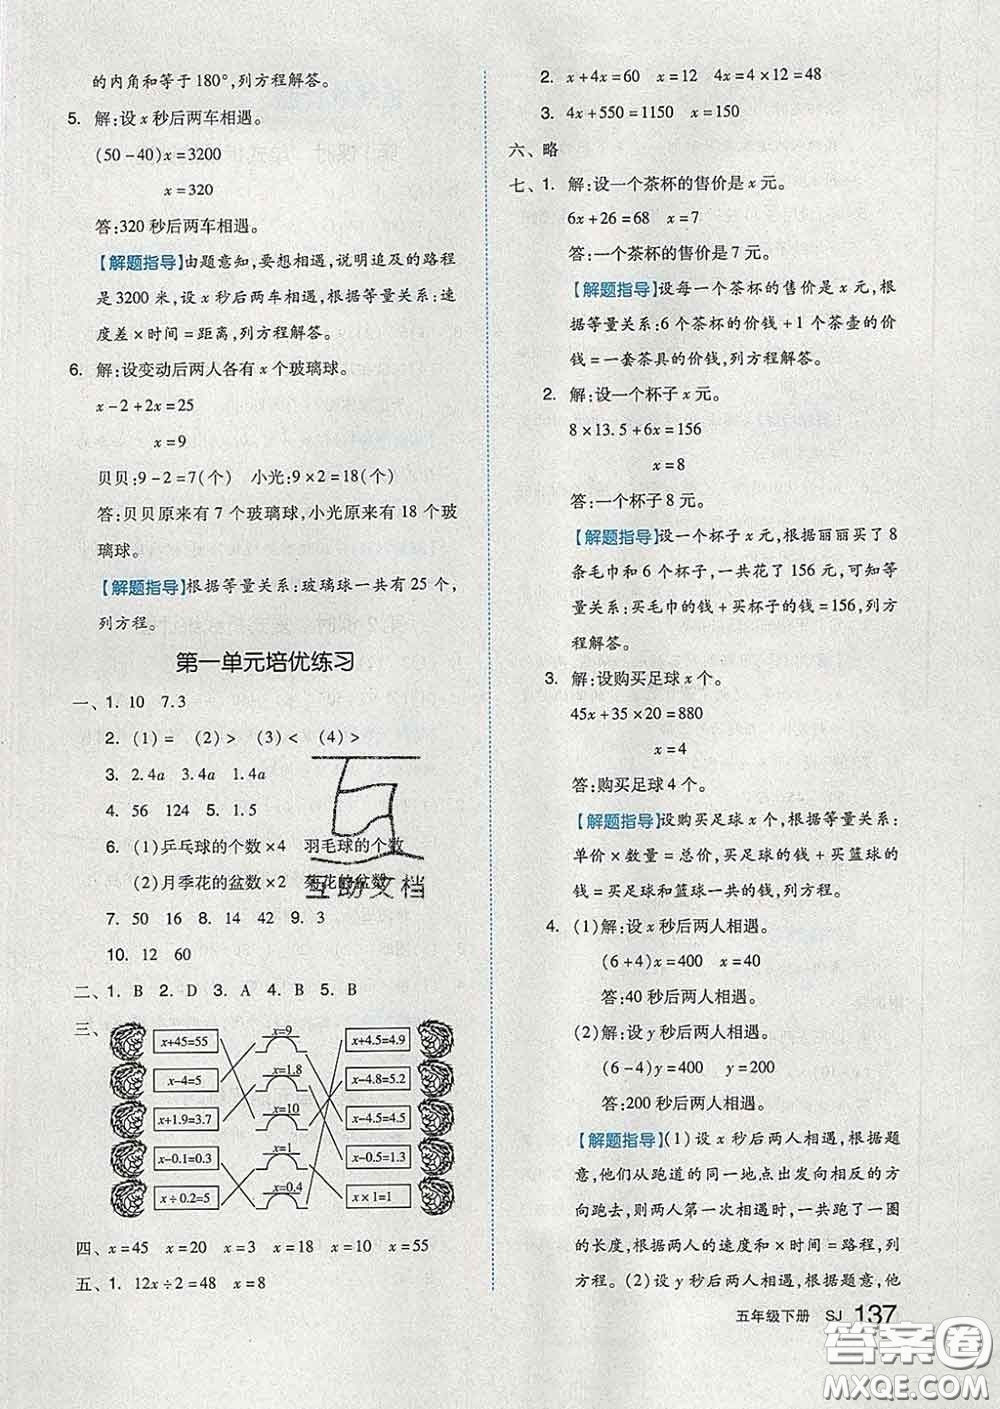 的内角和等于180°,列方程解答。
5. 解:设x秒后两车相遇。
(50-40)x=3200
x=320
答:320秒后两车相遇。
【解题指导】由题意知,要想相遇,说明追及的路程
是3200米,设x秒后两车相遇,根据等量关系:速
度差×时间=距离,列方程解答。
6. 解:设变动后两人各有x个玻璃球。
x-2+2x=25
x=9
贝贝:9-2=7(个) 小光:9×2=18(个)
答:贝贝原来有7个玻璃球,小光原来有18个玻
璃球。
【解题指导】根据等量关系:玻璃球一共有25个,
列方程。
第一单元培优练习
一、1. 10 7.3
2. (1)= (2)> (3)< (4)>
3. 2.4a 3.4a 1.4a
4. 56 124 5. 1.5
6. (1)乒乓球的个数×4 羽毛球的个数
(2)月季花的盆数×2 葵花的盆数
7. 50 16 8. 14 42 9. 3
10. 12 60
二、1. B 2. D 3. A 4. B 5. B
三、
x+45=55 x=9 x+4.5=4.9
x-4=5 x=1.8 x-4.8=5.2
x+1.9=3.7 x=10 x-4.5=4.5
x-0.1=0.3 x=1 x-0.5=1.3
x÷0.2=5 x=0.4 x×1=1
四、x=45 x=20 x=3 x=18 x=10 x=55
五、1. 12x÷2=48 x=8
2. x+4x=60 x=12 4×12=48
3. 4x+550=1150 x=150
六、略
七、1. 解:设一个茶杯的售价是x元。
6x+26=68 x=7
答:一个茶杯的售价是7元。
【解题指导】设每一个茶杯的售价是x元,根
据等量关系:6个茶杯的价钱+1个茶壶的价
钱=一套茶具的价钱,列方程解答。
2. 解:设一个杯子x元。
8×13.5+6x=156
x=8
答:一个杯子8元。
【解题指导】设一个杯子x元,根据丽丽买了8
条毛巾和6个杯子,一共花了156元,可知等
量关系:买毛巾的钱+买杯子的钱=156,列方
程解答。
3. 解:设购买足球x个。
45x+35×20=880
x=4
答:购买足球4个。
【解题指导】设购买足球x个,根据等量关系:
单价×数量=总价,买足球的钱+买篮球的
钱=买足球和篮球一共的钱,列方程。
4. (1)解:设x秒后两人相遇。
(6+4)x=400 x=40
答:40秒后两人相遇。
(2)解:设y秒后两人相遇。
(6-4)y=400 y=200
答:200秒后两人相遇。
【解题指导】(1)设x秒后两人相遇,根据题
意,他们从跑道的同一地点出发向相反的方
向跑去,则两人第一次相遇时,一共跑了一圈
的长度,根据两人的速度和×时间=路程,列
方程。(2)设y秒后两人相遇,根据题意,他
五年级下册 SJ 137
互助文档
答案圈
MXQE.COM